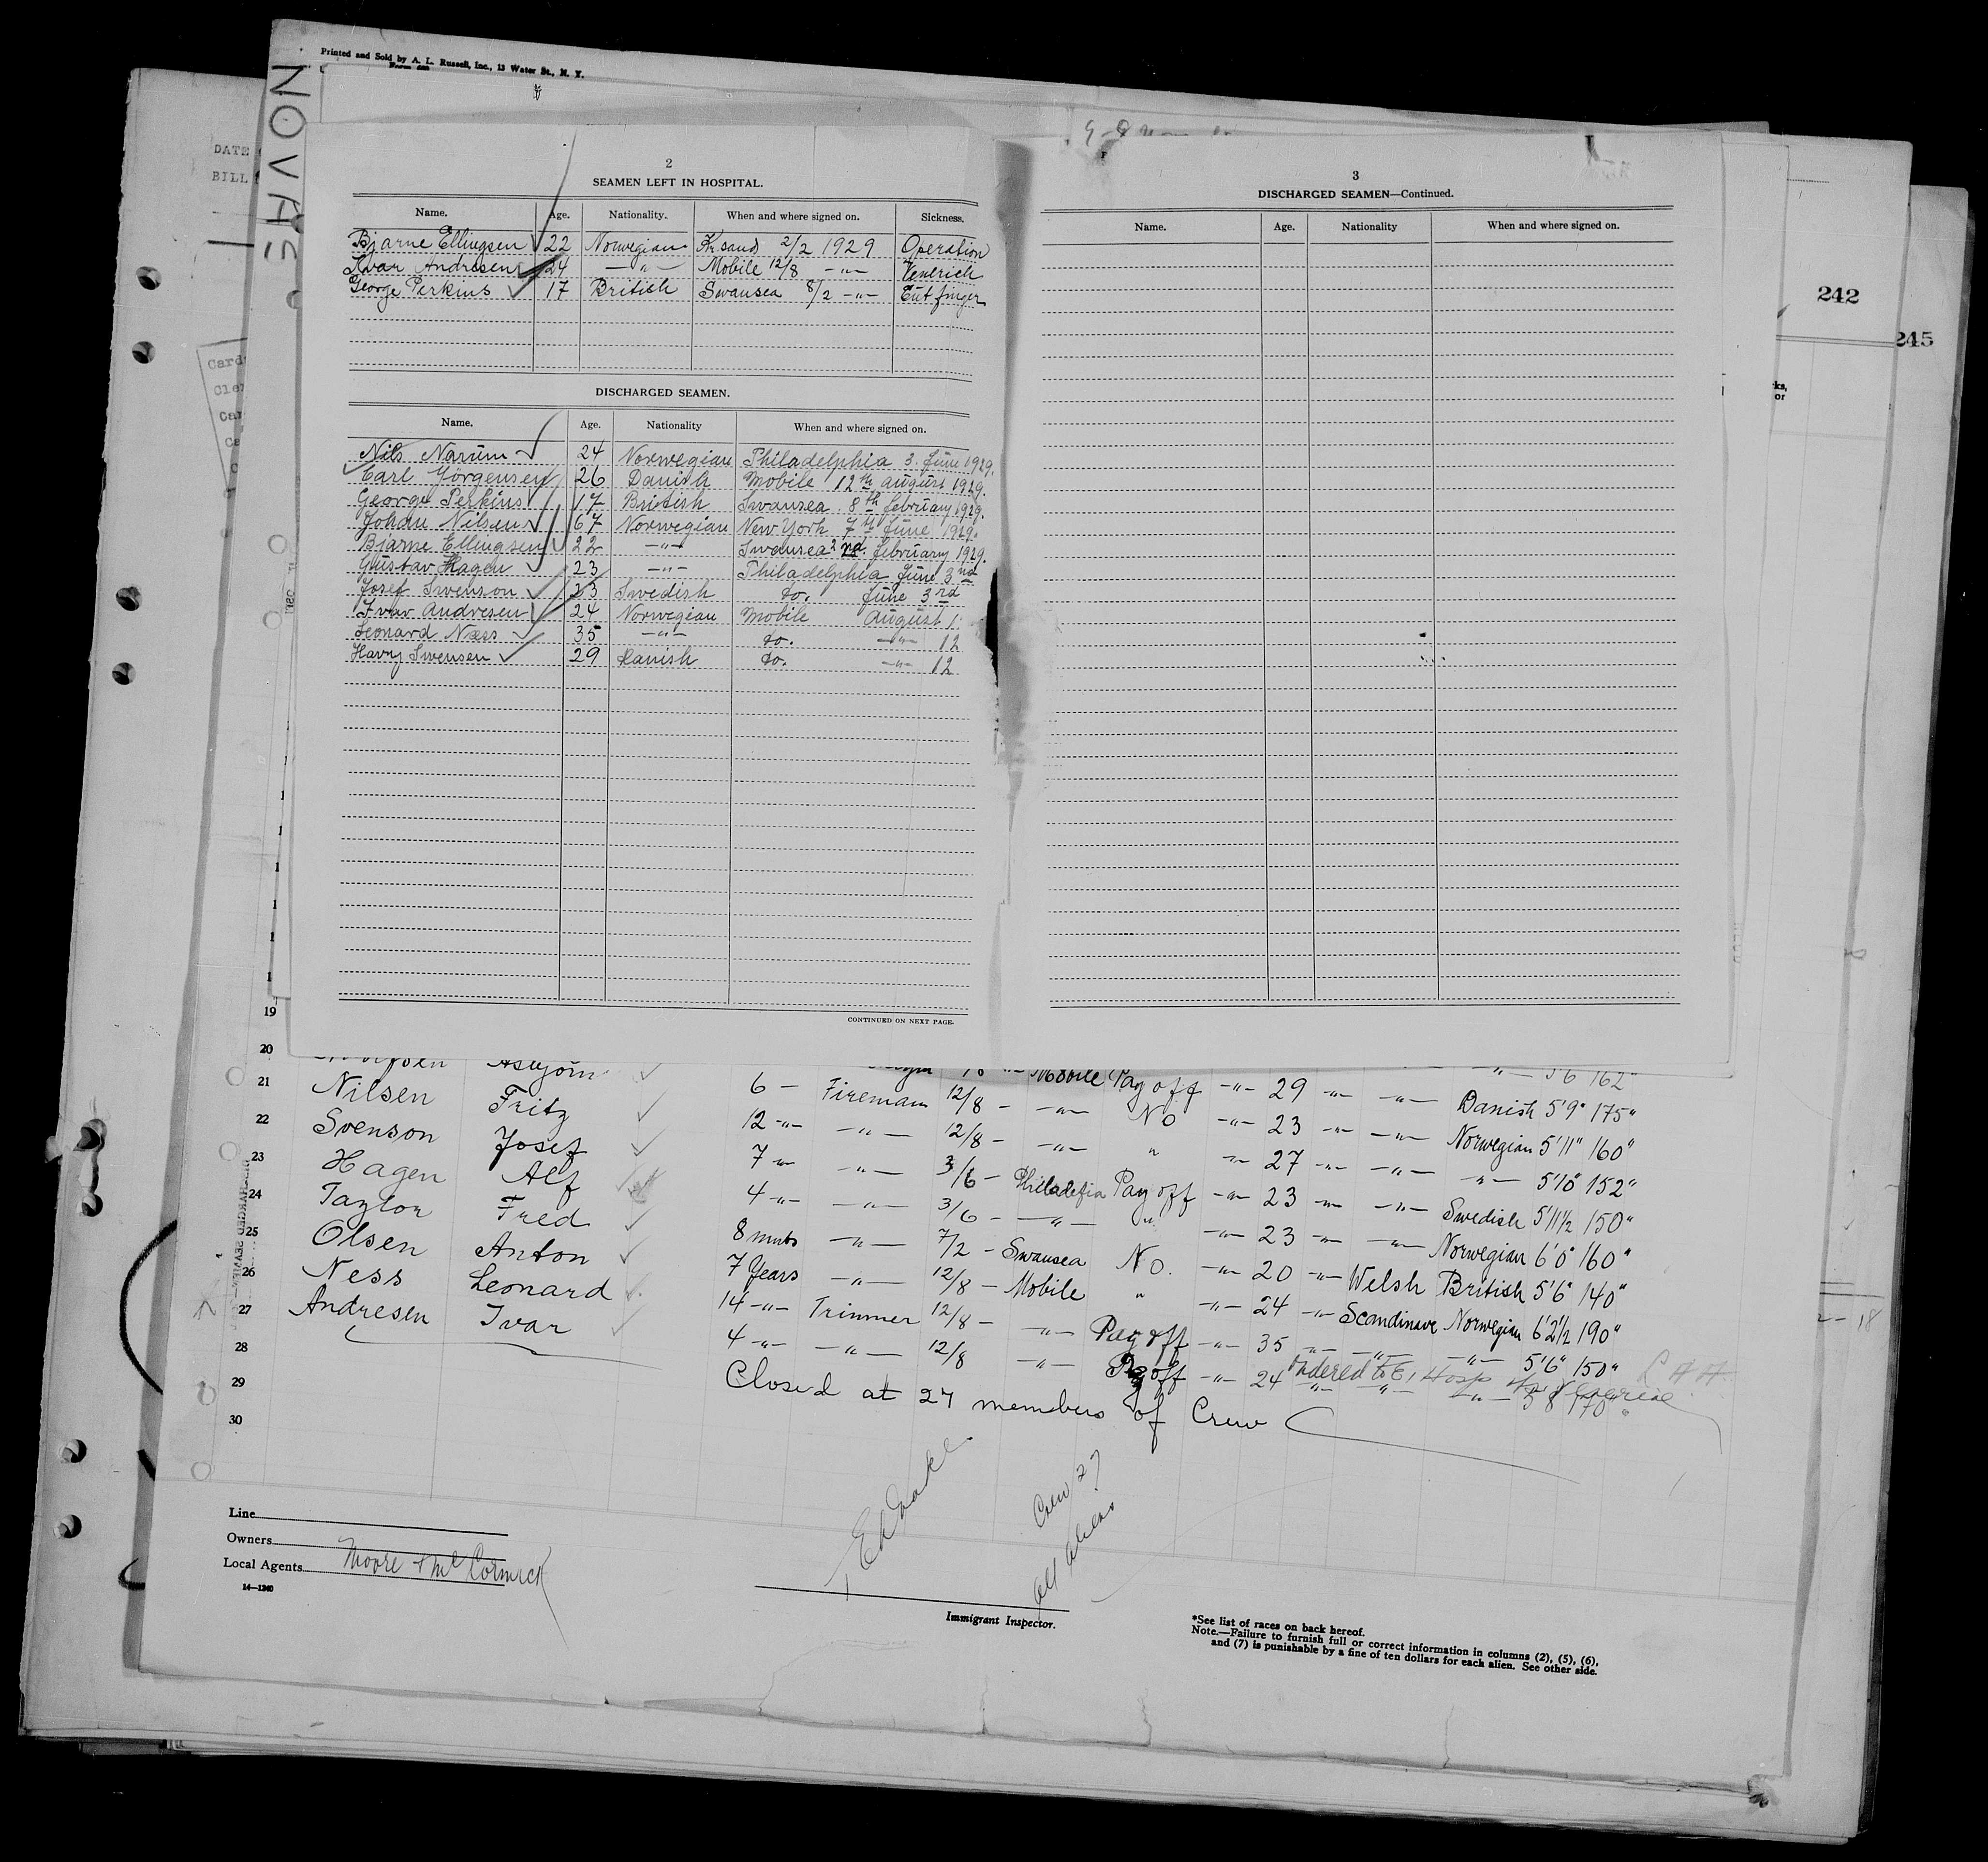 Printed and Sold by A. L. Russell, Inc., 13 Water St., N. Y.
NOVA
DATE
BILL
2
SEAMEN LEFT IN HOSPITAL.
Name. Age. Nationality. When and where signed on. Sickness.
Bjarne Ellingsen 22 Norwegian Kr.sand 2/2 1929 Operation
Ivar Andresen 24 —"— Mobile 12/8 —"— Venerich
George Perkins 17 British Swansea 8/2 —"— Cut finger
DISCHARGED SEAMEN.
Name. Age. Nationality When and where signed on.
Nils Narum 24 Norwegian Philadelphia 3. June 1929.
Carl Jörgensen 26 Danish Mobile 12th august 1929.
George Perkins 17 British Swansea 8th february 1929.
Johan Nilsen 67 Norwegian New York 7th June 1929.
Bjarne Ellingsen 22 —"— Swansea 2nd february 1929.
Gustav Hagen 23 —"— Philadelphia June 3nd
Josef Swenson 23 Swedish do. June 3rd
Ivar Andresen 24 Norwegian Mobile August 1
Leonard Næss 35 —"— do. —"— 12
Harry Swensen 29 Danish do. —"— 12
CONTINUED ON NEXT PAGE.
3
DISCHARGED SEAMEN—Continued.
Name. Age. Nationality When and where signed on.
242
245
ks,
or
19
20 Asbjörn Mobile Pay off —"— 29 —"— —"— —"— 5'6 162"
21 Nilsen Fritz 6 — Fireman 12/8 — —"— No —"— 23 —"— —"— Danish 5'9" 175"
22 Svenson Josef 12 —"— —"— 12/8 — —"— " —"— 27 —"— —"— Norwegian 5'11" 160"
23 Hagen Alf 7 —"— —"— 3/6 — Philadelfia Pay off —"— 23 —"— —"— —"— 5'10" 152"
24 Taylor Fred 4 —"— —"— 3/6 — —"— " —"— 23 —"— —"— Swedish 5'11½ 150"
25 Olsen Anton 8 mnts —"— 7/2 — Swansea No. —"— 20 —"— Welsh Norwegian 6'0" 160"
26 Ness Leonard 7 Years —"— 12/8 — Mobile " —"— 24 —"— Scandinave British 5'6" 140"
27 Andresen Ivar 14 —"— Trimmer 12/8 — —"— Pay off —"— 35 —"— —"— Norwegian 6'2½ 190"
28 4 —"— —"— 12/8 —"— Pay off —"— 24 —"— —"— —"— 5'6" 150"
29 Closed at 27 members of Crew
30
Crew 27
all aliens
Line
Owners
Local Agents Moore & McCormick
14—1240
Immigrant Inspector.
*See list of races on back hereof.
Note.—Failure to furnish full or correct information in columns (2), (5), (6),
and (7) is punishable by a fine of ten dollars for each alien. See other side.